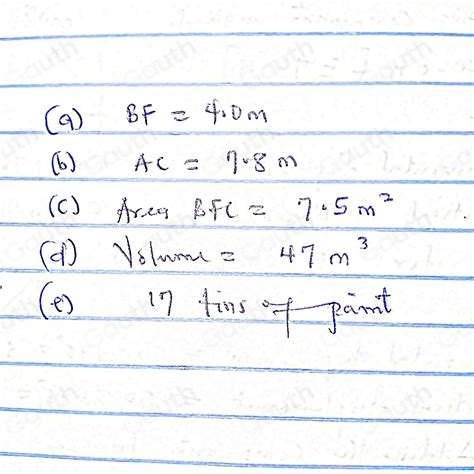 (a) BF = 4.0m
(b) AC = 7.8 m
(c) Area BFC = 7.5 m²
(d) Volume = 47 m³
(e) 17 tins of paint